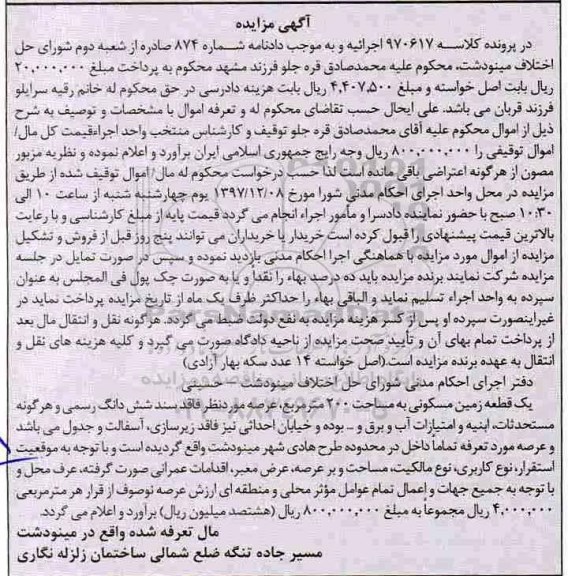 آگهی مزایده
در پرونده کلاسه ۹۷۰۶۱۷ اجرائیه و به موجب دادنامه شماره ۸۷۴ صادره از شعبه دوم شورای حل
اختلاف مینودشت، محکوم علیه محمدصادق قره جلو فرزند مشهد محکوم به پرداخت مبلغ ۲۰,۰۰۰,۰۰۰
ریال بابت اصل خواسته و مبلغ ۴,۴۰۷,۵۰۰ ریال بابت هزینه دادرسی در حق محکوم له خانم رقیه سرایلو
فرزند قربان می باشد. علی ایحال حسب تقاضای محکوم له و تعرفه اموال با مشخصات و توصیف به شرح
ذیل از اموال محکوم علیه آقای محمدصادق قره جلو توقیف و کارشناس منتخب واحد اجراءقیمت کل مال/
اموال توقیفی را ۸۰۰,۰۰۰,۰۰۰ ریال وجه رایج جمهوری اسلامی ایران برآورد و اعلام نموده و نظریه مزبور
مصون از هرگونه اعتراضی باقی مانده است لذا حسب درخواست محکوم له مال/ اموال توقیف شده از طریق
مزایده در محل واحد اجرای احکام مدنی شورا مورخ ۱۳۹۷/۱۲/۰۸ یوم چهارشنبه شنبه از ساعت ۱۰ الی
۱۰:۳۰ صبح با حضور نماینده دادسرا و مأمور اجراء انجام می گردد قیمت پایه از مبلغ کارشناسی و با رعایت
بالاترین قیمت پیشنهادی را قبول کرده است خریدار یا خریداران می توانند پنج روز قبل از فروش و تشکیل
مزایده از اموال مورد مزایده با هماهنگی اجرا احکام مدنی بازدید نموده و سپس در صورت تمایل در جلسه
مزایده شرکت نمایند برنده مزایده باید ده درصد بهاء را نقداً و یا به صورت چک پول فی المجلس به عنوان
سپرده به واحد اجراء تسلیم نماید و الباقی بهاء را حداکثر ظرف یک ماه از تاریخ مزایده پرداخت نماید در
غیراینصورت سپرده او پس از کسر هزینه مزایده به نفع دولت ضبط می گردد. هرگونه نقل و انتقال مال بعد
از پرداخت تمام بهای آن و تأیید صحت مزایده از ناحیه دادگاه صورت می گیرد و کلیه هزینه های نقل و
انتقال به عهده برنده مزایده است.(اصل خواسته ۱۴ عدد سکه بهار آزادی)
دفتر اجرای احکام مدنی شورای حل اختلاف مینودشت - حسینی
یک قطعه زمین مسکونی به مساحت ۲۰۰ مترمربع عرصه موردنظر فاقد سند شش دانگ رسمی و هرگونه
مستحدثات، ابنیه و امتیازات آب و برق و ... بوده و خیابان احداثی نیز فاقد زیرسازی، آسفالت و جدول می باشد
و عرصه مورد تعرفه تماماً داخل در محدوده طرح هادی شهر مینودشت واقع گردیده است و با توجه به موقعیت
استقرار، نوع کاربری، نوع مالکیت، مساحت و بر عرصه، عرض معبر، اقدامات عمرانی صورت گرفته، عرف محل و
با توجه به جمیع جهات و إعمال تمام عوامل مؤثر محلی و منطقه ای ارزش عرصه توصوف از قرار هر مترمربعی
۴,۰۰۰,۰۰۰ ریال مجموعا به مبلغ ۸۰۰,۰۰۰,۰۰۰ ریال (هشتصد میلیون ریال) برآورد و اعلام می گردد.
مال تعرفه شده واقع در مینودشت
مسیر جاده تنگه ضلع شمالی ساختمان زلزله نگاری